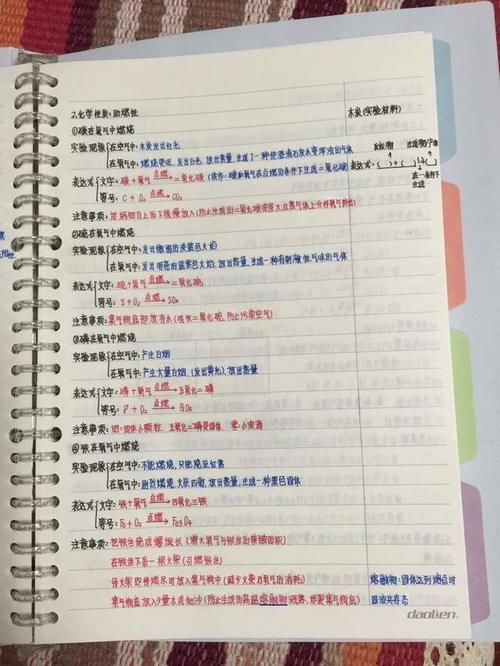 2.化学性质:助燃性
木炭(实验材料)
①碳在氧气中燃烧
实验现象 在空气中:木炭发出红光
在氧气中:燃烧更旺,发出白光,放出热量,生成了一种使澄清石灰水变浑浊的气体
反应物 生成物/产物
表达式 文字:碳+氧气 点燃→ 二氧化碳(读作:碳和氧气在点燃的条件下生成二氧化碳)
表达式:( )+( ) →( )
在一条件下
生成
符号:C+O₂ 点燃→ CO₂
注意事项:用坩埚钳自上而下缓慢放入(防止生成的二氧化碳密度大且氧气体上分将氧气挤出)
②硫在氧气中燃烧
实验现象 在空气中:发出微弱的淡蓝色火焰
在氧气中:发出明亮的蓝紫色火焰,放出热量,生成一种有刺激性气味的气体
表达式 文字:硫+氧气 点燃→ 二氧化硫
符号:S+O₂ 点燃→ SO₂
注意事项:集气瓶底部放有水(吸收二氧化硫,防止污染空气)
③磷在氧气中燃烧
实验现象 在空气中:产生白烟
在氧气中:产生大量白烟,(发出黄光),放出热量
表达式 文字:磷+氧气 点燃→ 五氧化二磷
符号:P+O₂ 点燃→ P₂O₅
注意事项:烟:固体小颗粒 五氧化二磷是固体 雾:小液滴
④铁在氧气中燃烧
实验现象 在空气中:不能燃烧,只能烧至红热
在氧气中:剧烈燃烧,火星四射,放出热量,生成一种黑色固体
表达式 文字:铁+氧气 点燃→ 四氧化三铁
符号:Fe+O₂ 点燃→ Fe₃O₄
注意事项:把铁丝绕成螺旋状(增大氧气与铁丝的接触面积)
在铁丝下系一根火柴(引燃铁丝)
待火柴即将燃尽时放入集气瓶中(减少火柴对氧气的消耗)
熔融物:固体达到熔点时
集气瓶底放入少量水或细沙(防止生成的高温熔融物溅落,炸裂集气瓶底)
固液共存态
daolien